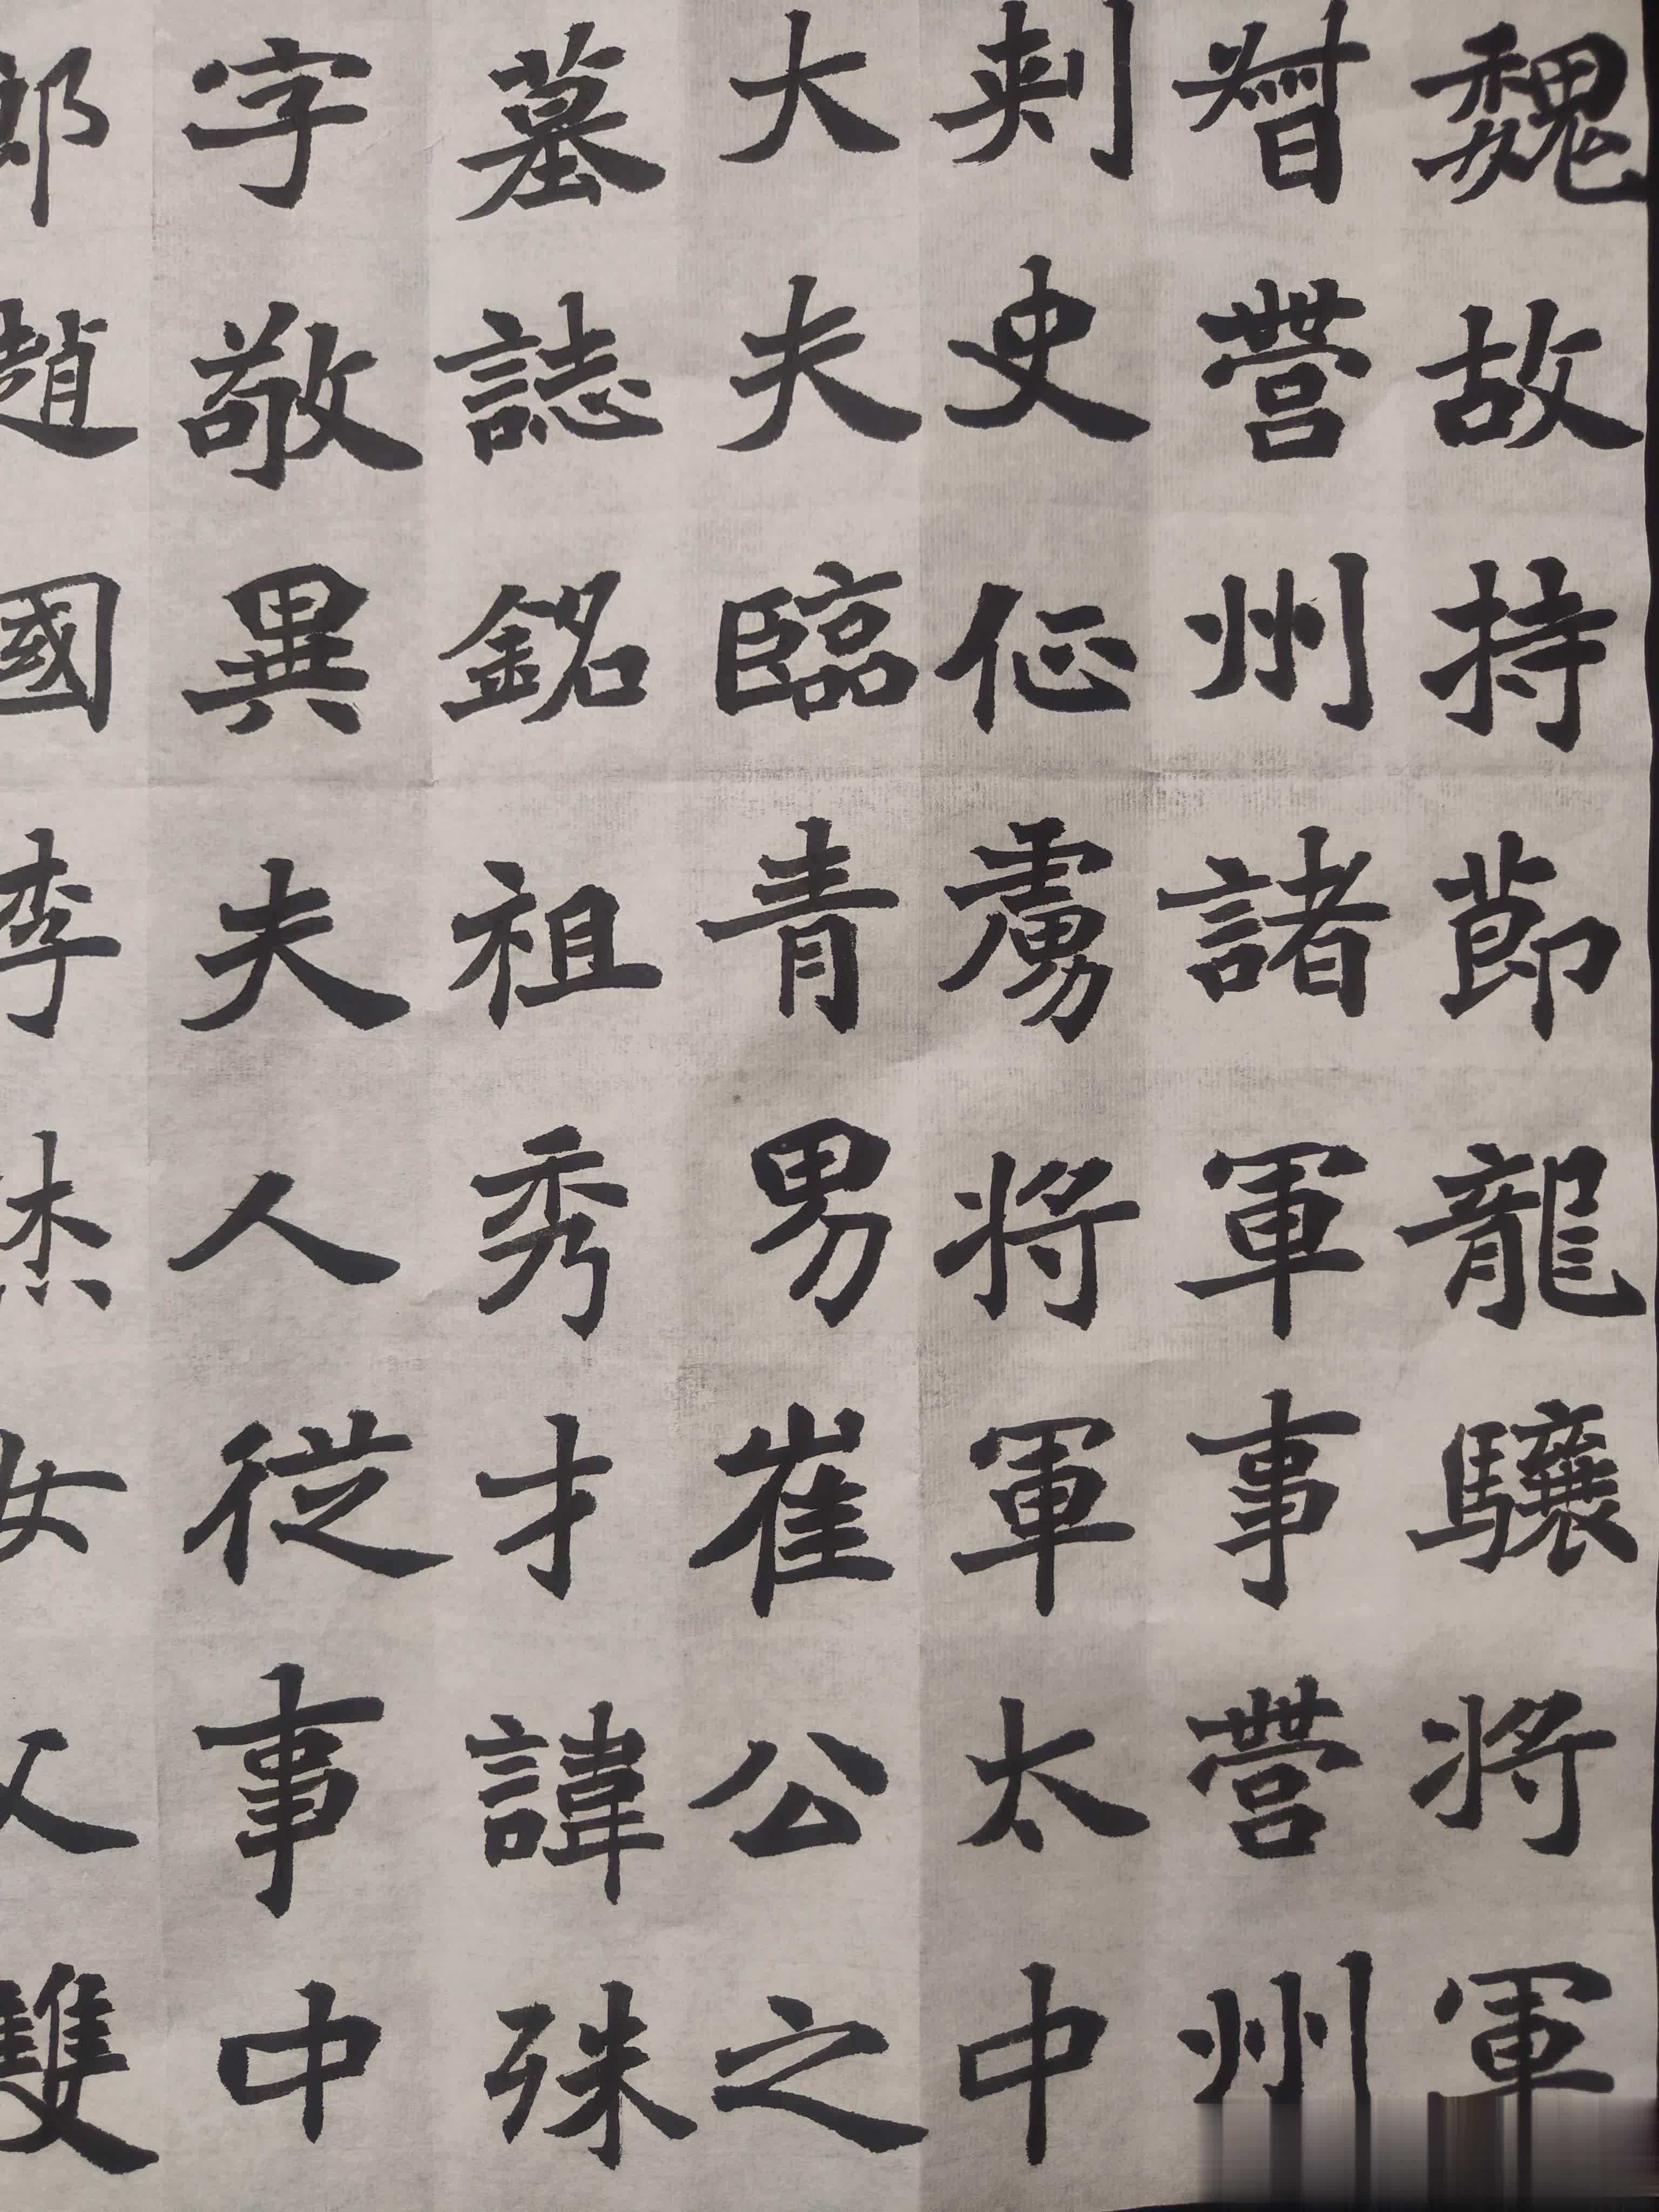 魏故持莭龍驤将軍
督營州諸軍事營州
刺史征虜将軍太中
大夫臨青男崔公之
墓誌銘祖秀才諱殊
字敬異夫人從事中
郎趙國李烋女父雙